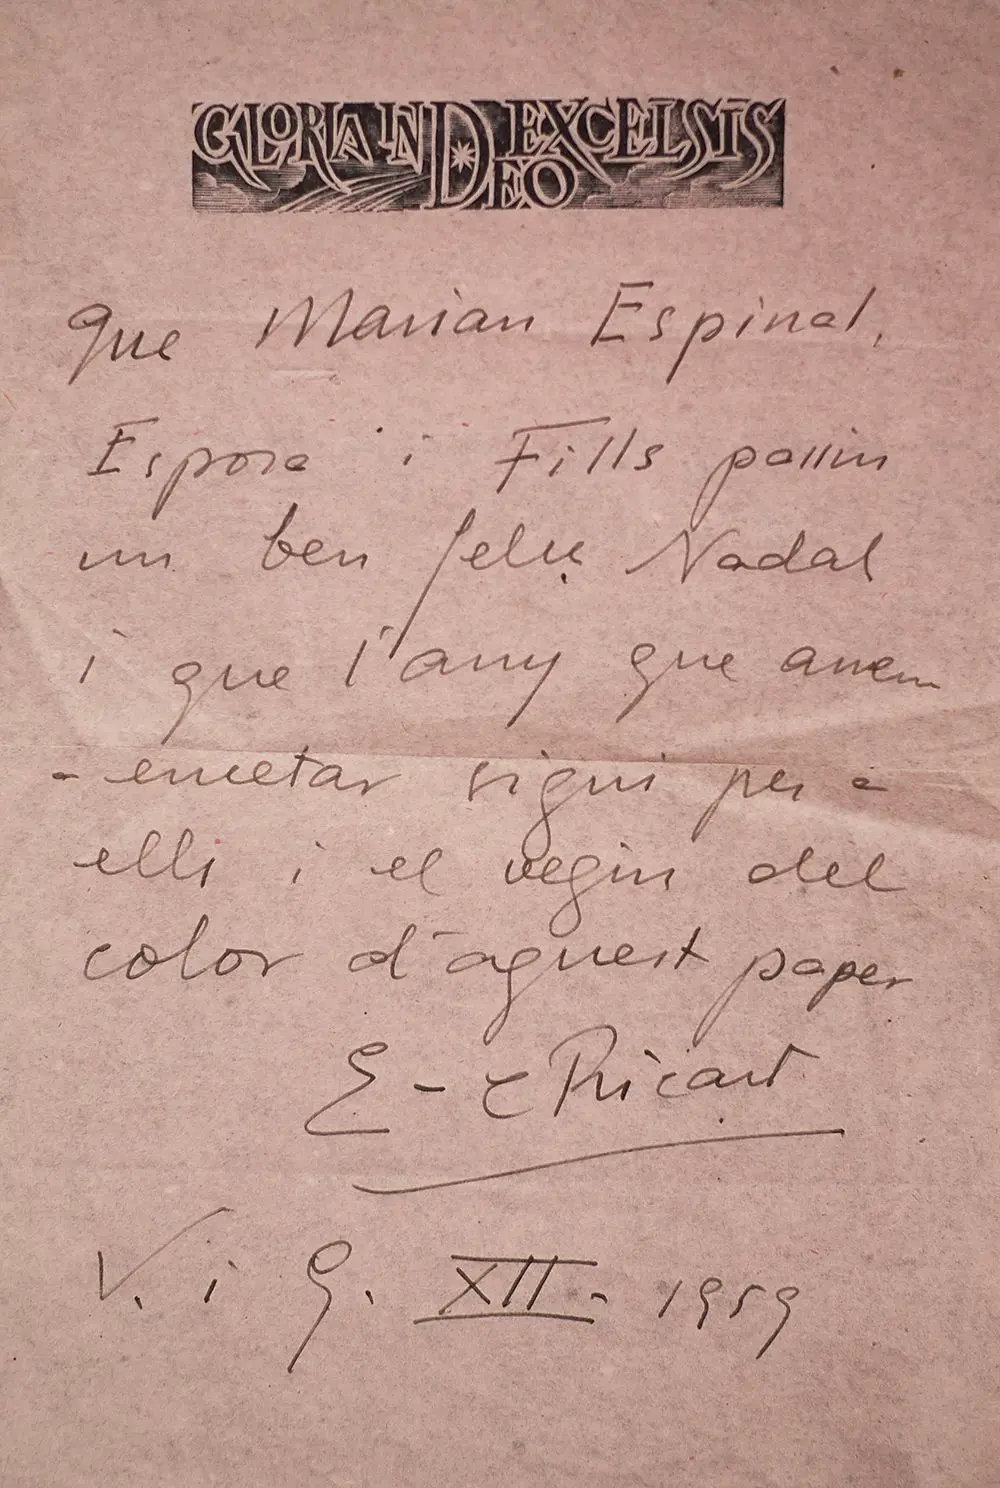 GLORIA IN EXCELSIS
DEO
Que Marian Espinal,
Esposa i Fills passin
un ben feliç Nadal
i que l'any que anem
a encetar sigui per a
ells i el vegin del
color d'aquest paper
E-C Ricart
V. i G. XII - 1959